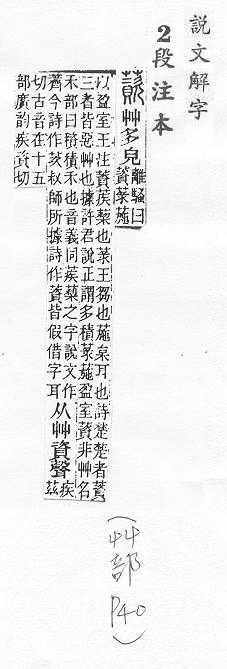 說文解字
2段注本
薋艸多皃離騷曰
薋菉葹
以盈室王注薋蒺藜也菉王芻也葹枲耳也詩楚楚者薋
三者皆惡艸也據許君說正謂多積菉葹盈室薋非艸名
禾部曰𥡯積禾也音義同蒺藜之字說文作
薺今詩作茨叔師所據詩作薋皆假借字耳
从艸資聲疾
茲
切古音在十五
部廣韵疾資切
(艸部P40)